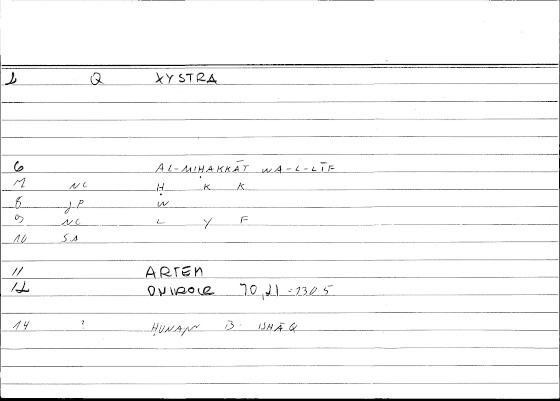 1 Q XYSTRA
6 AL-MIḤAKKĀT WA-L-LĪF
7 NC Ḥ K K
8 JP W
9 NC L Y F
10 SA
11 ARTEM
12 ONIROCR 70,21 - 730.5
14 ? ḤUNAYN B. ISḤĀQ